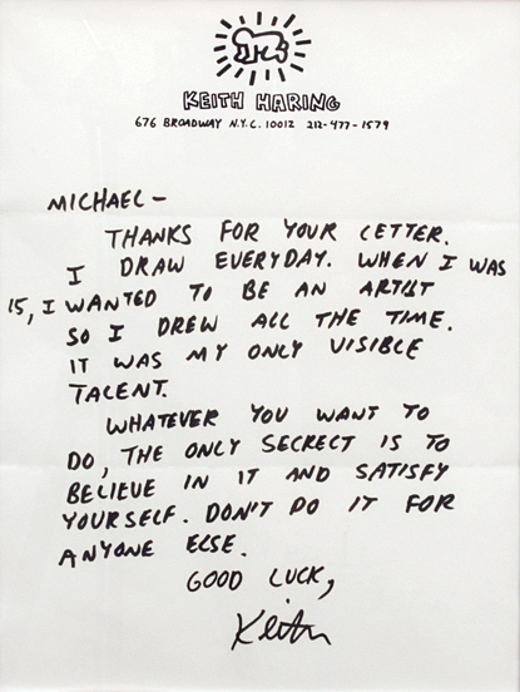 KEITH HARING
676 BROADWAY N.Y.C. 10012 212-477-1579
MICHAEL —
THANKS FOR YOUR LETTER.
I DRAW EVERYDAY. WHEN I WAS
15, I WANTED TO BE AN ARTIST
SO I DREW ALL THE TIME.
IT WAS MY ONLY VISIBLE
TALENT.
WHATEVER YOU WANT TO
DO, THE ONLY SECRECT IS TO
BELIEVE IN IT AND SATISFY
YOURSELF. DON'T DO IT FOR
ANYONE ELSE.
GOOD LUCK,
Keith